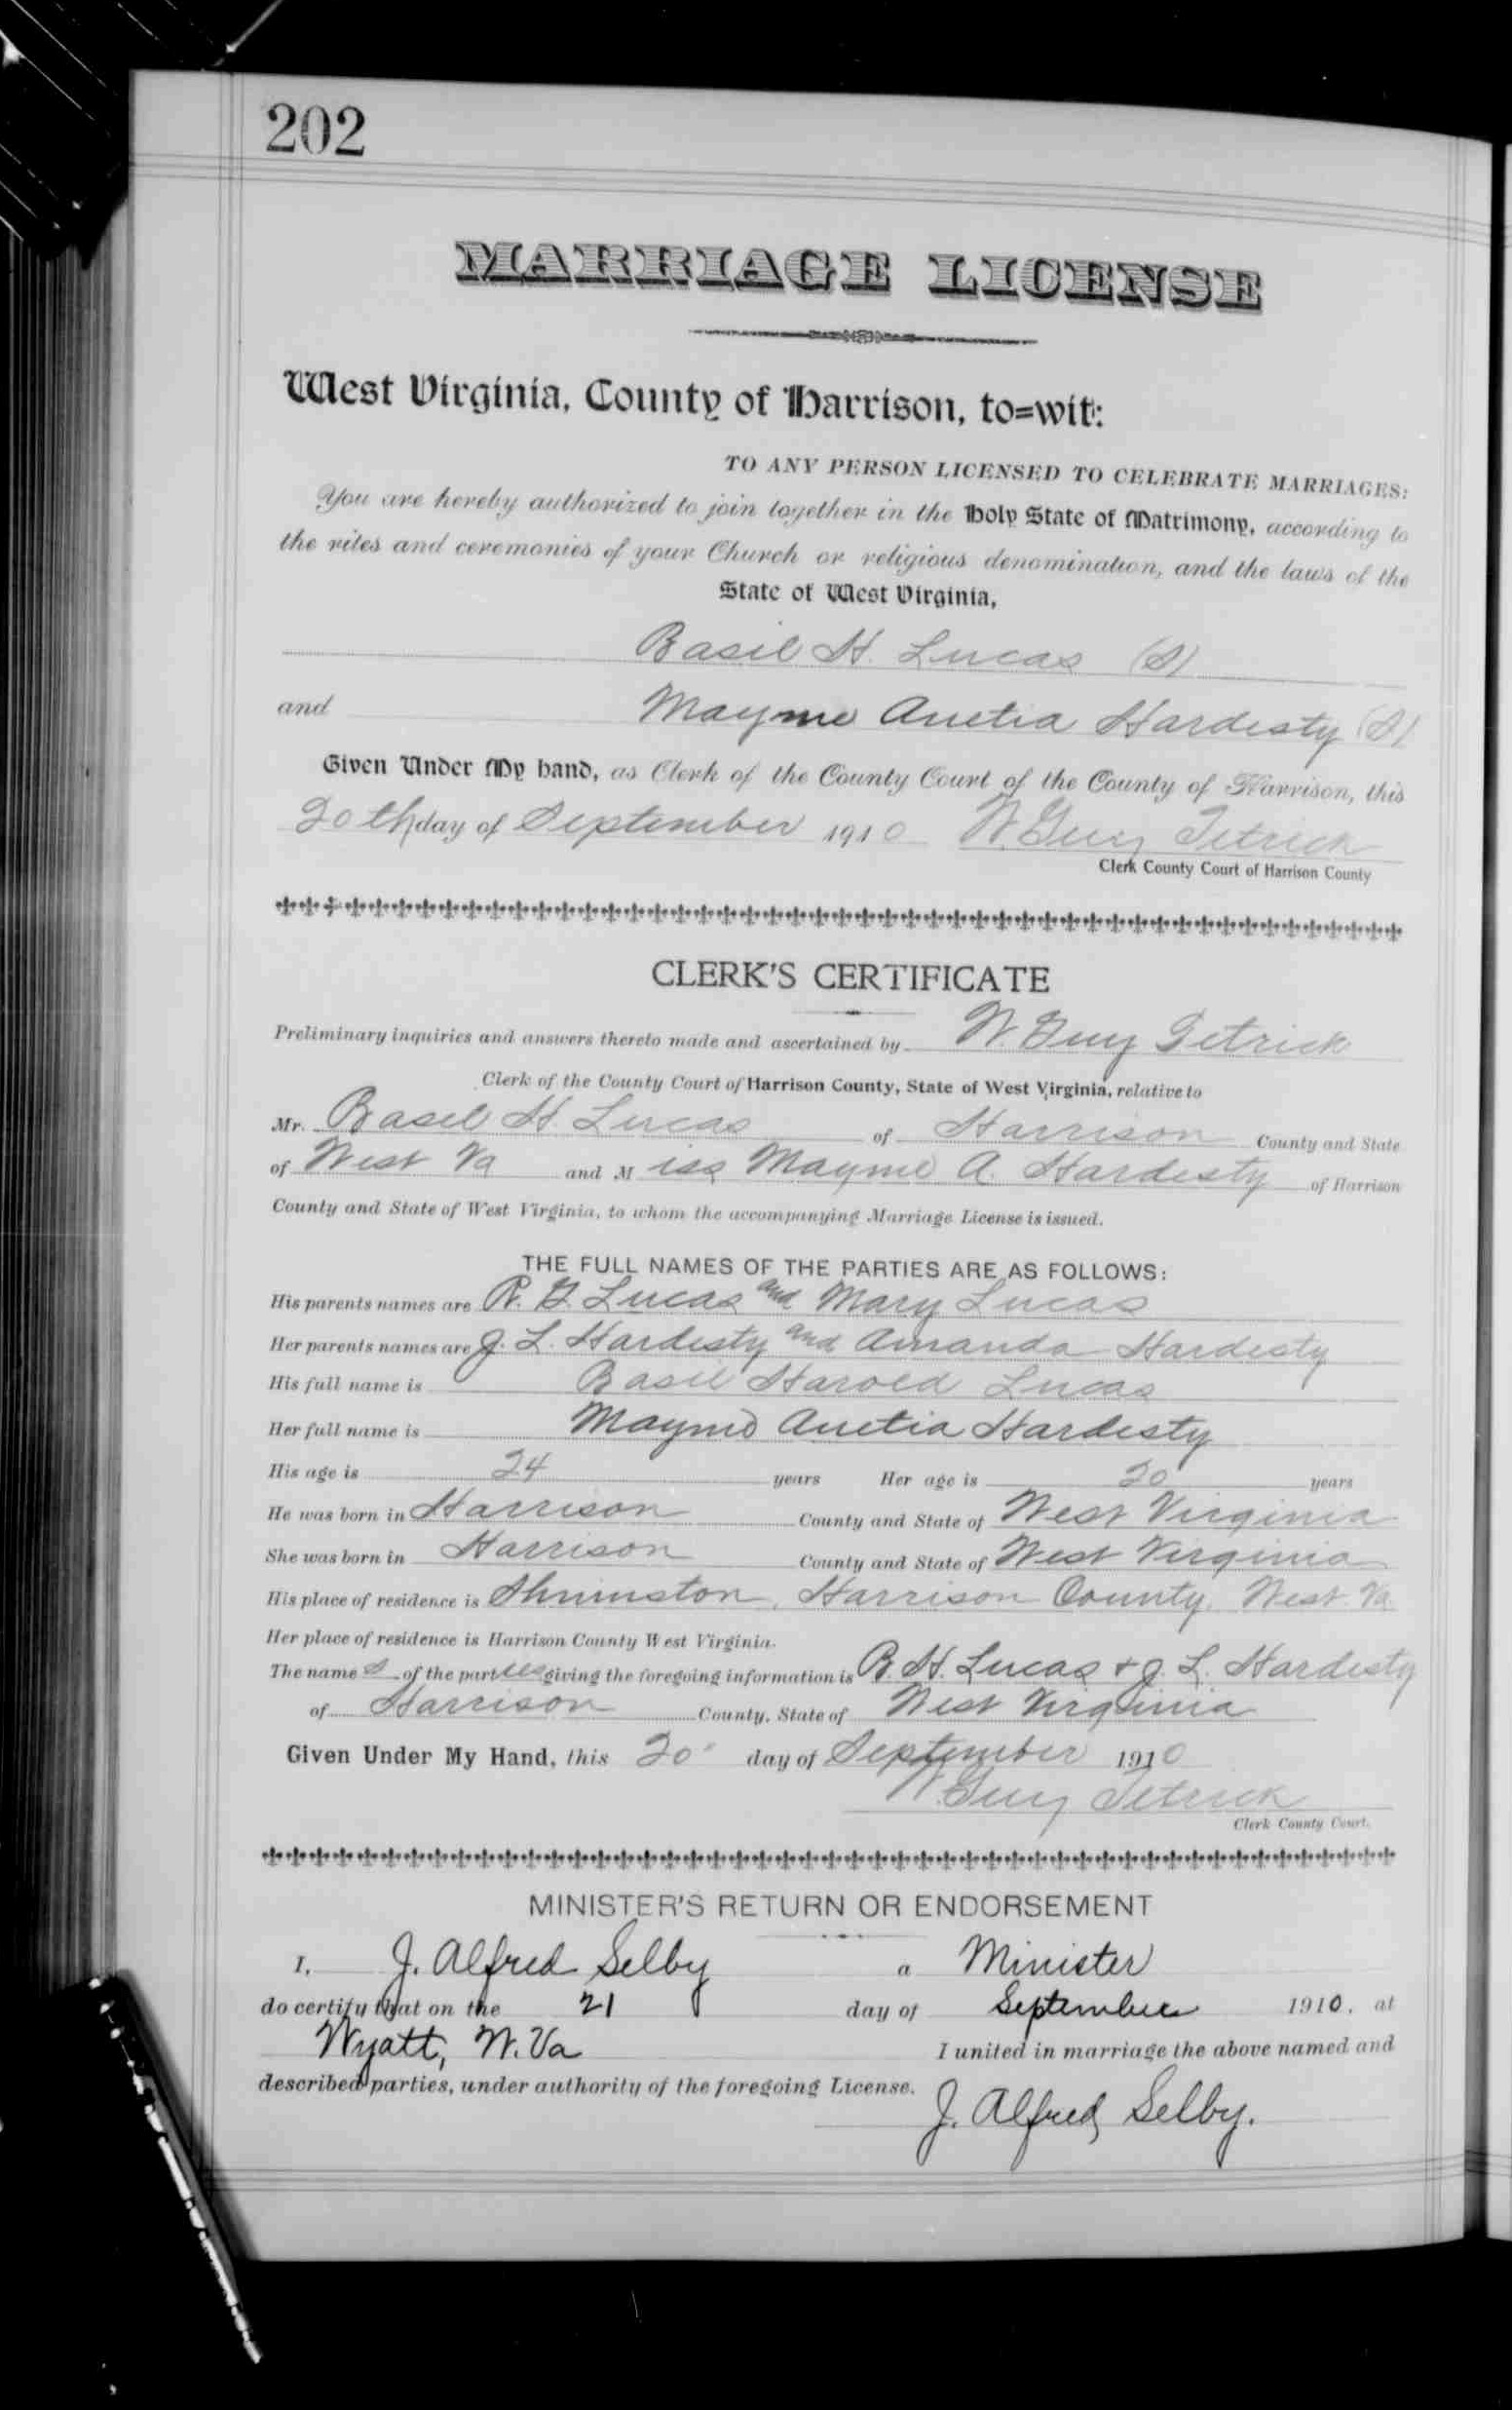 202
MARRIAGE LICENSE
West Virginia, County of Harrison, to=wit:
TO ANY PERSON LICENSED TO CELEBRATE MARRIAGES:
You are hereby authorized to join together in the Holy State of Matrimony, according to
the rites and ceremonies of your Church or religious denomination, and the laws of the
State of West Virginia,
Basil H. Lucas (S)
and Mayme Auetia Hardesty (S)
Given Under My hand, as Clerk of the County Court of the County of Harrison, this
20th day of September 1910 W. Guy Tetrick
Clerk County Court of Harrison County
CLERK'S CERTIFICATE
Preliminary inquiries and answers thereto made and ascertained by W. Guy Tetrick
Clerk of the County Court of Harrison County, State of West Virginia, relative to
Mr. Basil H. Lucas of Harrison County and State
of West Va and Miss Mayme A. Hardesty of Harrison
County and State of West Virginia, to whom the accompanying Marriage License is issued.
THE FULL NAMES OF THE PARTIES ARE AS FOLLOWS:
His parents names are R. G. Lucas and Mary Lucas
Her parents names are J. L. Hardesty and Amanda Hardesty
His full name is Basil Harold Lucas
Her full name is Mayme Auetia Hardesty
His age is 24 years Her age is 20 years
He was born in Harrison County and State of West Virginia
She was born in Harrison County and State of West Virginia
His place of residence is Shinnston, Harrison County, West Va
Her place of residence is Harrison County West Virginia.
The names of the parties giving the foregoing information is B. H. Lucas + J. L. Hardesty
of Harrison County, State of West Virginia
Given Under My Hand, this 20" day of September 1910
W. Guy Tetrick
Clerk County Court.
MINISTER'S RETURN OR ENDORSEMENT
I, J. Alfred Selby a Minister
do certify that on the 21 day of September 1910, at
Wyatt, W. Va I united in marriage the above named and
described parties, under authority of the foregoing License.
J. Alfred Selby.